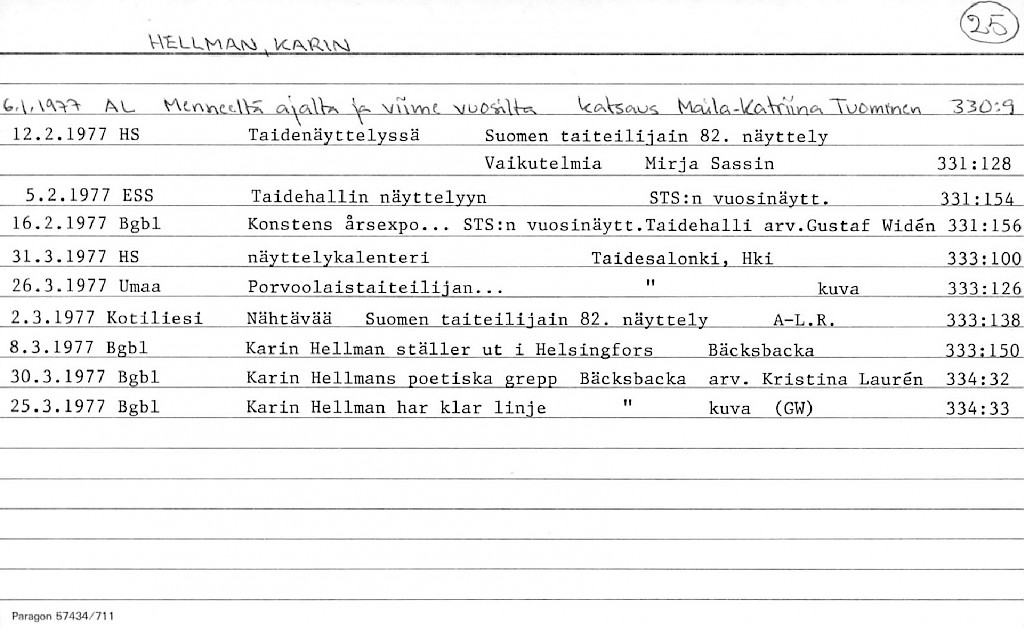 25
HELLMAN, KARIN
6.1.1977 AL Menneeltä ajalta ja viime vuosilta katsaus Maila-Katriina Tuominen 330:9
12.2.1977 HS Taidenäyttelyssä Suomen taiteilijain 82. näyttely
Vaikutelmia Mirja Sassin 331:128
5.2.1977 ESS Taidehallin näyttelyyn STS:n vuosinäytt. 331:154
16.2.1977 Bgbl Konstens årsexpo... STS:n vuosinäytt.Taidehalli arv.Gustaf Widén 331:156
31.3.1977 HS näyttelykalenteri Taidesalonki, Hki 333:100
26.3.1977 Umaa Porvoolaistaiteilijan... " kuva 333:126
2.3.1977 Kotiliesi Nähtävää Suomen taiteilijain 82. näyttely A-L.R. 333:138
8.3.1977 Bgbl Karin Hellman ställer ut i Helsingfors Bäcksbacka 333:150
30.3.1977 Bgbl Karin Hellmans poetiska grepp Bäcksbacka arv. Kristina Laurén 334:32
25.3.1977 Bgbl Karin Hellman har klar linje " kuva (GW) 334:33
Paragon 57434/711